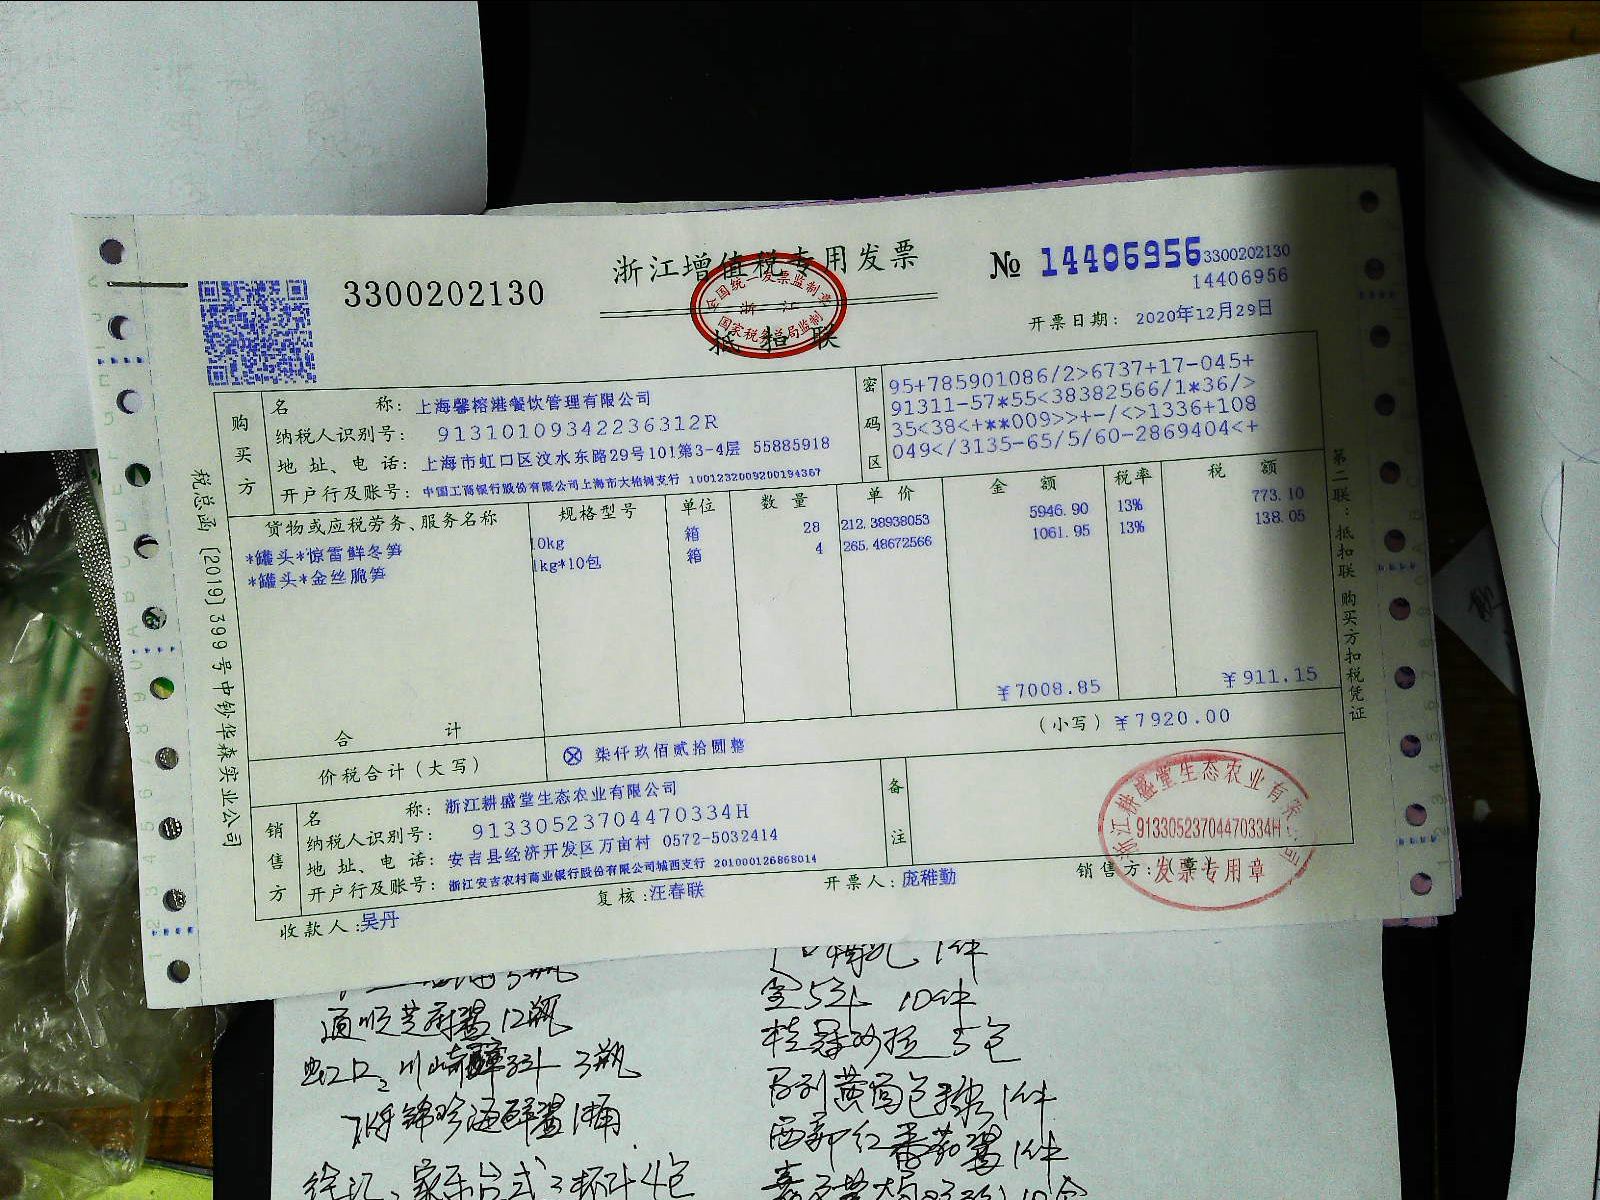 浙江增值税专用发票
抵扣联
全国统一发票监制章
浙江
国家税务总局监制
3300202130
№ 14406956
3300202130
14406956
开票日期: 2020年12月29日
购买方
名称: 上海馨榕港餐饮管理有限公司
纳税人识别号: 91310109342236312R
地址、电话: 上海市虹口区汶水东路29号101第3-4层 55885918
开户行及账号: 中国工商银行股份有限公司上海市大柏树支行 1001232009200194367
密码区
95+785901086/2>6737+17-045+
91311-57*55<38382566/1*36/>
35<38<+**009>>+-/<>1336+108
049</3135-65/5/60-2869404<+
货物或应税劳务、服务名称 规格型号 单位 数量 单价 金额 税率 税额
*罐头*惊雷鲜冬笋 10kg 箱 28 212.38938053 5946.90 13% 773.10
*罐头*金丝脆笋 1kg*10包 箱 4 265.48672566 1061.95 13% 138.05
合计 ¥7008.85 ¥911.15
价税合计(大写) ⊗ 柒仟玖佰贰拾圆整 (小写) ¥7920.00
销售方
名称: 浙江耕盛堂生态农业有限公司
纳税人识别号: 91330523704470334H
地址、电话: 安吉县经济开发区万亩村 0572-5032414
开户行及账号: 浙江安吉农村商业银行股份有限公司城西支行 201000126868014
备注
收款人: 吴丹 复核: 汪春联 开票人: 庞稚勤 销售方: 章
浙江耕盛堂生态农业有限公司
91330523704470334H
发票专用章
税总函[2019]399号中钞华森实业公司
第二联:抵扣联 购买方扣税凭证
12瓶
3瓶
1桶
4包
1件
10件
5包
1件
1件